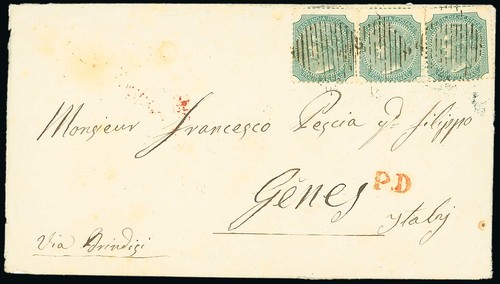 Monsieur Francesco Pescia qm Filippo
Gênes
P.D
Italy
Via Brindisi